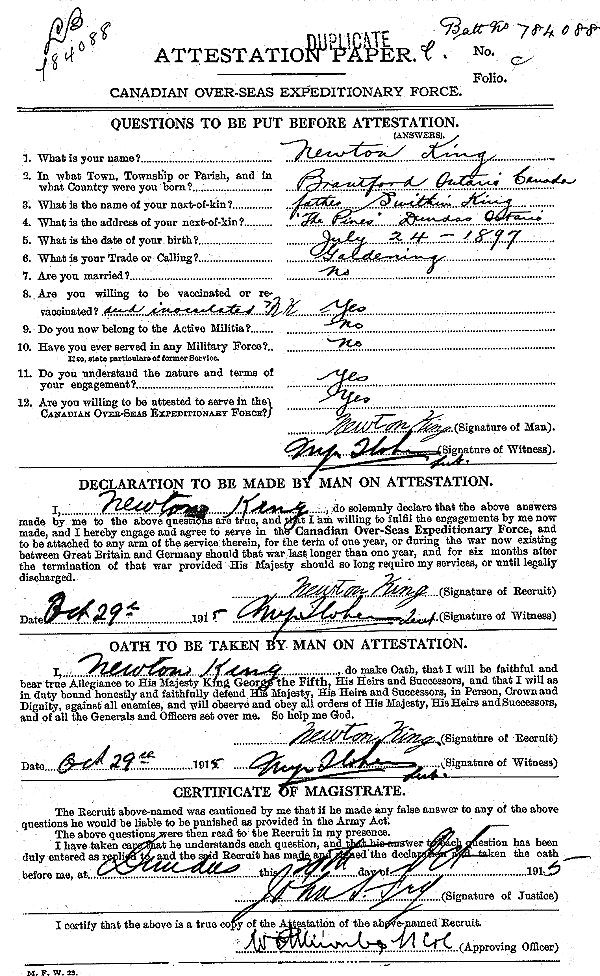 184088
DUPLICATE
Batt No 784088
ATTESTATION PAPER.
No.
Folio.
CANADIAN OVER-SEAS EXPEDITIONARY FORCE.
QUESTIONS TO BE PUT BEFORE ATTESTATION.
(ANSWERS).
1. What is your name? Newton King
2. In what Town, Township or Parish, and in
what Country were you born? Brantford Ontario Canada
3. What is the name of your next-of-kin? father Swithin King
4. What is the address of your next-of-kin? "The Pines" Dundas Ontario
5. What is the date of your birth? July 24 - 1897
6. What is your Trade or Calling? Gardening
7. Are you married? No
8. Are you willing to be vaccinated or re-
vaccinated? and inoculated? NK Yes
9. Do you now belong to the Active Militia? No
10. Have you ever served in any Military Force? No
If so, state particulars of former Service.
11. Do you understand the nature and terms of
your engagement? Yes
12. Are you willing to be attested to serve in the Yes
CANADIAN OVER-SEAS EXPEDITIONARY FORCE?
Newton King (Signature of Man).
(Signature of Witness).
DECLARATION TO BE MADE BY MAN ON ATTESTATION.
I, Newton King, do solemnly declare that the above answers
made by me to the above questions are true, and that I am willing to fulfil the engagements by me now
made, and I hereby engage and agree to serve in the Canadian Over-Seas Expeditionary Force, and
to be attached to any arm of the service therein, for the term of one year, or during the war now existing
between Great Britain and Germany should that war last longer than one year, and for six months after
the termination of that war provided His Majesty should so long require my services, or until legally
discharged.
Newton King (Signature of Recruit)
Date Oct 29th 1915 Lieut. (Signature of Witness)
OATH TO BE TAKEN BY MAN ON ATTESTATION.
I, Newton King, do make Oath, that I will be faithful and
bear true Allegiance to His Majesty King George the Fifth, His Heirs and Successors, and that I will as
in duty bound honestly and faithfully defend His Majesty, His Heirs and Successors, in Person, Crown and
Dignity, against all enemies, and will observe and obey all orders of His Majesty, His Heirs and Successors,
and of all the Generals and Officers set over me. So help me God.
Newton King (Signature of Recruit)
Date Oct 29th 1915 (Signature of Witness)
CERTIFICATE OF MAGISTRATE.
The Recruit above-named was cautioned by me that if he made any false answer to any of the above
questions he would be liable to be punished as provided in the Army Act.
The above questions were then read to the Recruit in my presence.
I have taken care that he understands each question, and that his answer to each question has been
duly entered as replied to, and the said Recruit has made and signed the declaration and taken the oath
before me, at Dundas this 29th day of Oct 1915
(Signature of Justice)
I certify that the above is a true copy of the Attestation of the above-named Recruit.
(Approving Officer)
M. F. W. 23.